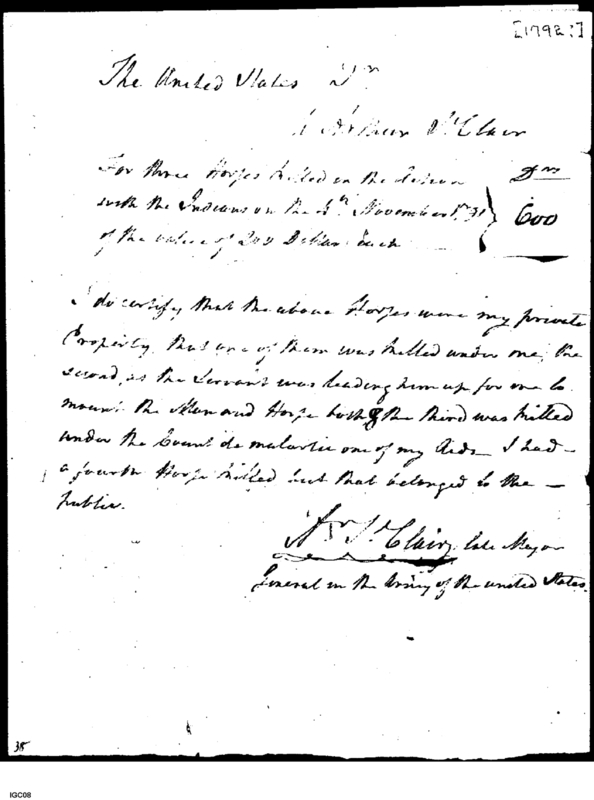 [1792?]
The United States Dr
to Arthur St Clair
For three Horses killed in the Action
with the Indians on the 4th November 1791
of the value of 200 Dollars Each
Drs
600
I do certify that the above Horses were my private
Property, that one of them was killed under me, the
second, as the Servant was leading him up for me to
mount the Man and Horse both & the third was killed
under the Count de malartie one of my Aids – I had –
a fourth Horse killed but that belonged to the –
public.
Ar St Clair late Major
General in the Army of the united States.
35
IGC08